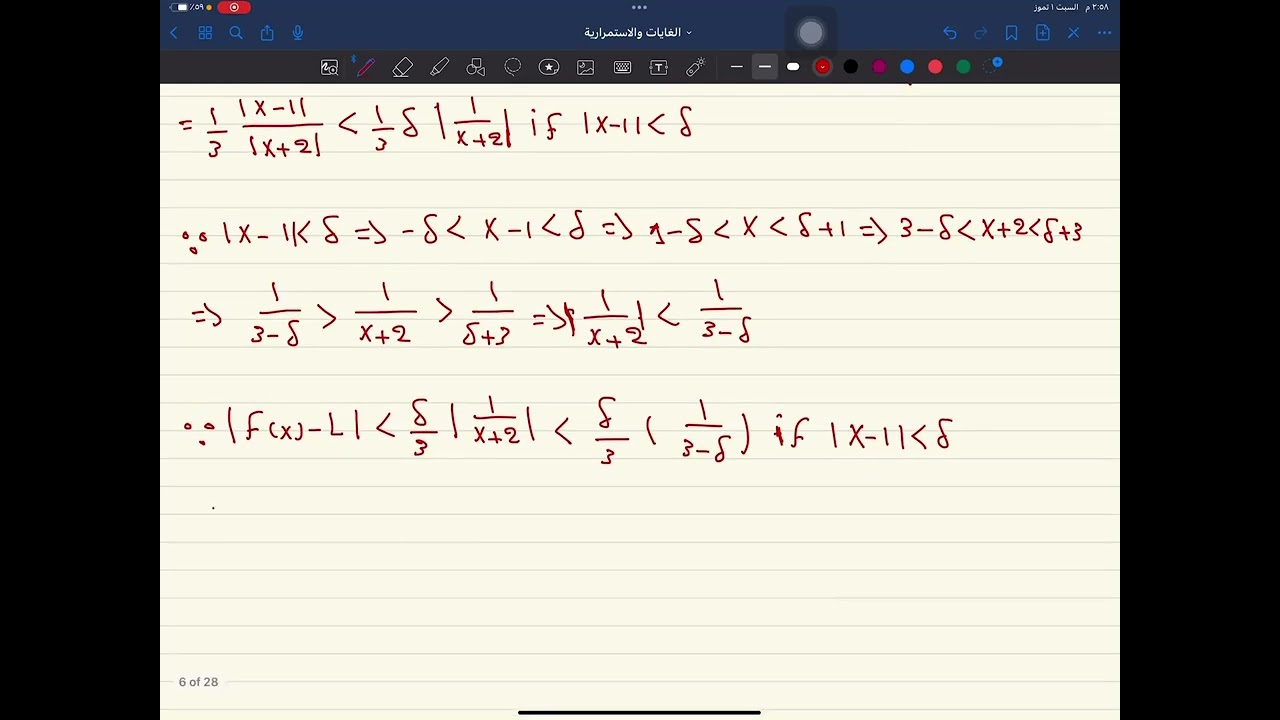 ٪٥٩ ٢:٥٨ م السبت ١ تموز
الغايات والاستمرارية
= 1/3 |x-1|/|x+2| < 1/3 δ |1/x+2| if |x-1| < δ
∵ |x-1| < δ => -δ < x-1 < δ => 1-δ < x < δ+1 => 3-δ < x+2 < δ+3
=> 1/3-δ > 1/x+2 > 1/δ+3 => |1/x+2| < 1/3-δ
∵ |f(x)-L| < δ/3 |1/x+2| < δ/3 (1/3-δ) if |x-1| < δ
6 of 28